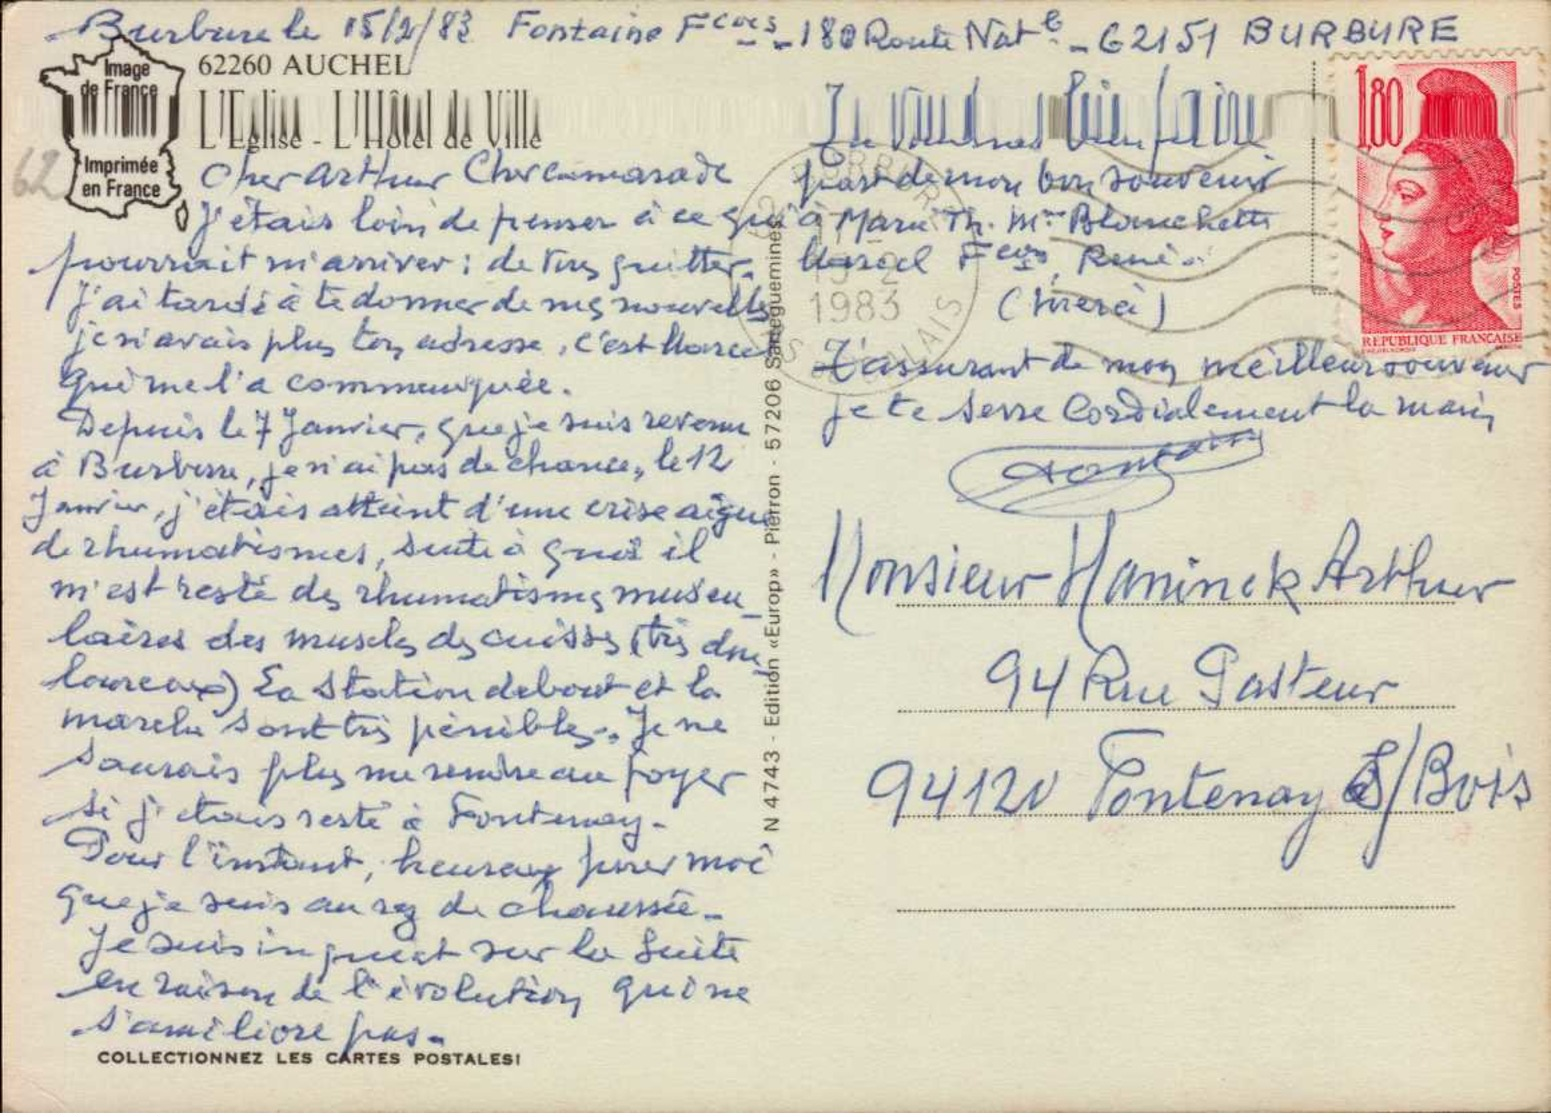 Burbure le 15/2/83 Fontaine Fçois - 180 Route Natle - 62151 BURBURE
Image
de France
Imprimée
en France
62
62260 AUCHEL
L'Eglise - L'Hôtel de Ville
Cher Arthur Cher camarade
J'étais loin de penser à ce qui
pourrait m'arriver : de vous quitter.
J'ai tardé à te donner de mes nouvelles
je n'avais plus ton adresse, c'est Marcel
qui me l'a communiquée.
Depuis le 7 Janvier, que je suis revenu
à Burbure, je n'ai pas de chance, le 12
Janvier, j'étais atteint d'une crise aigue
de rhumatismes, suite à quoi il
m'est resté des rhumatismes muscu-
laires des muscles des cuisses (très dou-
loureux) La station debout et la
marche sont très pénibles. Je ne
saurais plus me rendre au foyer
si j'étais resté à Fontenay.
Pour l'instant, heureux pour moi
que je suis au rez de chaussée.
Je suis inquiet sur la suite
en raison de l'évolution qui ne
s'améliore pas.
COLLECTIONNEZ LES CARTES POSTALES!
N 4743 - Edition «Europ» - Pierron - 57206 Sarreguemines
Tu voudras bien faire
part de mon bon souvenir
à Marie Th. Me Blanchette
Marcel Fçois, René.
(Merci)
T'assurant de mon meilleur souvenir
je te serre cordialement la main
Fontaine
1,80
POSTES
REPUBLIQUE FRANÇAISE
BURBURE
1983
CALAIS
Monsieur Haninck Arthur
94 Rue Pasteur
94120 Fontenay S/Bois